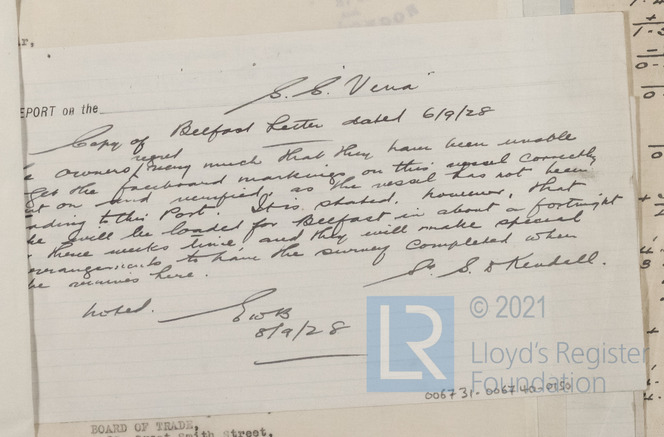 S.S. "Vena"
EPORT on the
Copy of Belfast Letter dated 6/9/28
owners regret very much that they have been unable
get the freeboard markings on this vessel correctly
on and verified, as the vessel has not been
ading to this Port. It is stated, however, that
he will be loaded for Belfast in about a fortnight
three weeks time, and they will make special
arrangements to have the survey completed when
he arrives here.
S. D Kendall.
Noted.
EWB
8/9/28
LR
© 2021
Lloyd's Register
Foundation
006731-006740-0150
BOARD OF TRADE,
Smith Street,